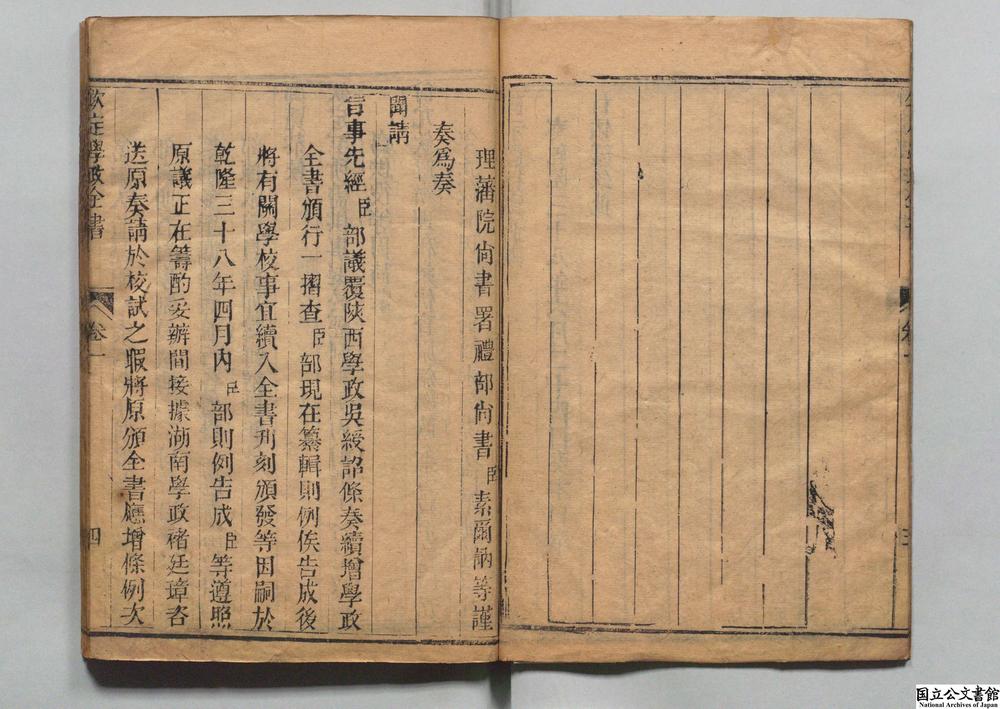 理藩院尙書署禮部尙書臣素爾訥等謹
奏爲奏
聞請
旨事先經臣部議覆陝西學政吳綬詔條奏續增學政
全書頒行一摺查臣部現在纂輯則例俟告成後
將有關學校事宜續入全書刋刻頒發等因嗣於
乾隆三十八年四月內臣部則例告成臣等遵照
原議正在籌酌妥辦間接據湖南學政褚廷璋咨
送原奏請於校試之暇將原頒全書應增條例次
欽定學政全書
卷一
四
国立公文書館
National Archives of Japan